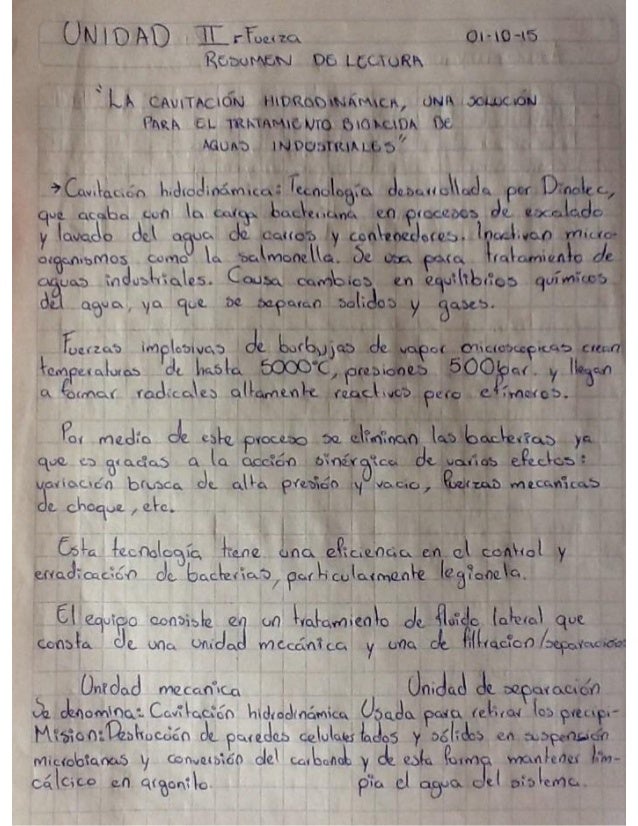 UNIDAD II - Fuerza 01-10-15
RESUMEN DE LECTURA
"LA CAVITACIÓN HIDRODINÁMICA, UNA SOLUCIÓN
PARA EL TRATAMIENTO BIOACIDA DE
AGUAS INDUSTRIALES"
→ Cavitación hidrodinámica: Tecnología desarrollada por Dinotec,
que acaba con la carga bacteriana en procesos de escalado
y lavado del agua de carros y contenedores. Inactivan micro-
organismos como la salmonella. Se usa para tratamiento de
aguas industriales. Causa cambios en equilibrios químicos
del agua, ya que se separan solidos y gases.
Fuerzas implosivas de burbujas de vapor microscopicas crean
temperaturas de hasta 5000°C, presiones 500bar. y llegan
a formar radicales altamente reactivos pero efímeros.
Por medio de este proceso se eliminan las bacterias ya
que es gracias a la acción sinérgica de varios efectos:
variación brusca de alta presión y vacio, fuerzas mecanicas
de choque, etc.
Esta tecnología tiene una eficiencia en el control y
erradicación de bacterias, particularmente legionela.
El equipo consiste en un tratamiento de fluido lateral que
consta de una unidad mecánica y una de filtracion/separacion:
Unidad mecanica Unidad de separación
Se denomina: Cavitación hidrodinámica Usada para retirar los precipi-
Mision: Destrucción de paredes celulares tados y sólidos en suspensión
microbianas y conversión del carbonato y de esta forma mantener lim-
cálcico en argonito. pia el agua del sistema.